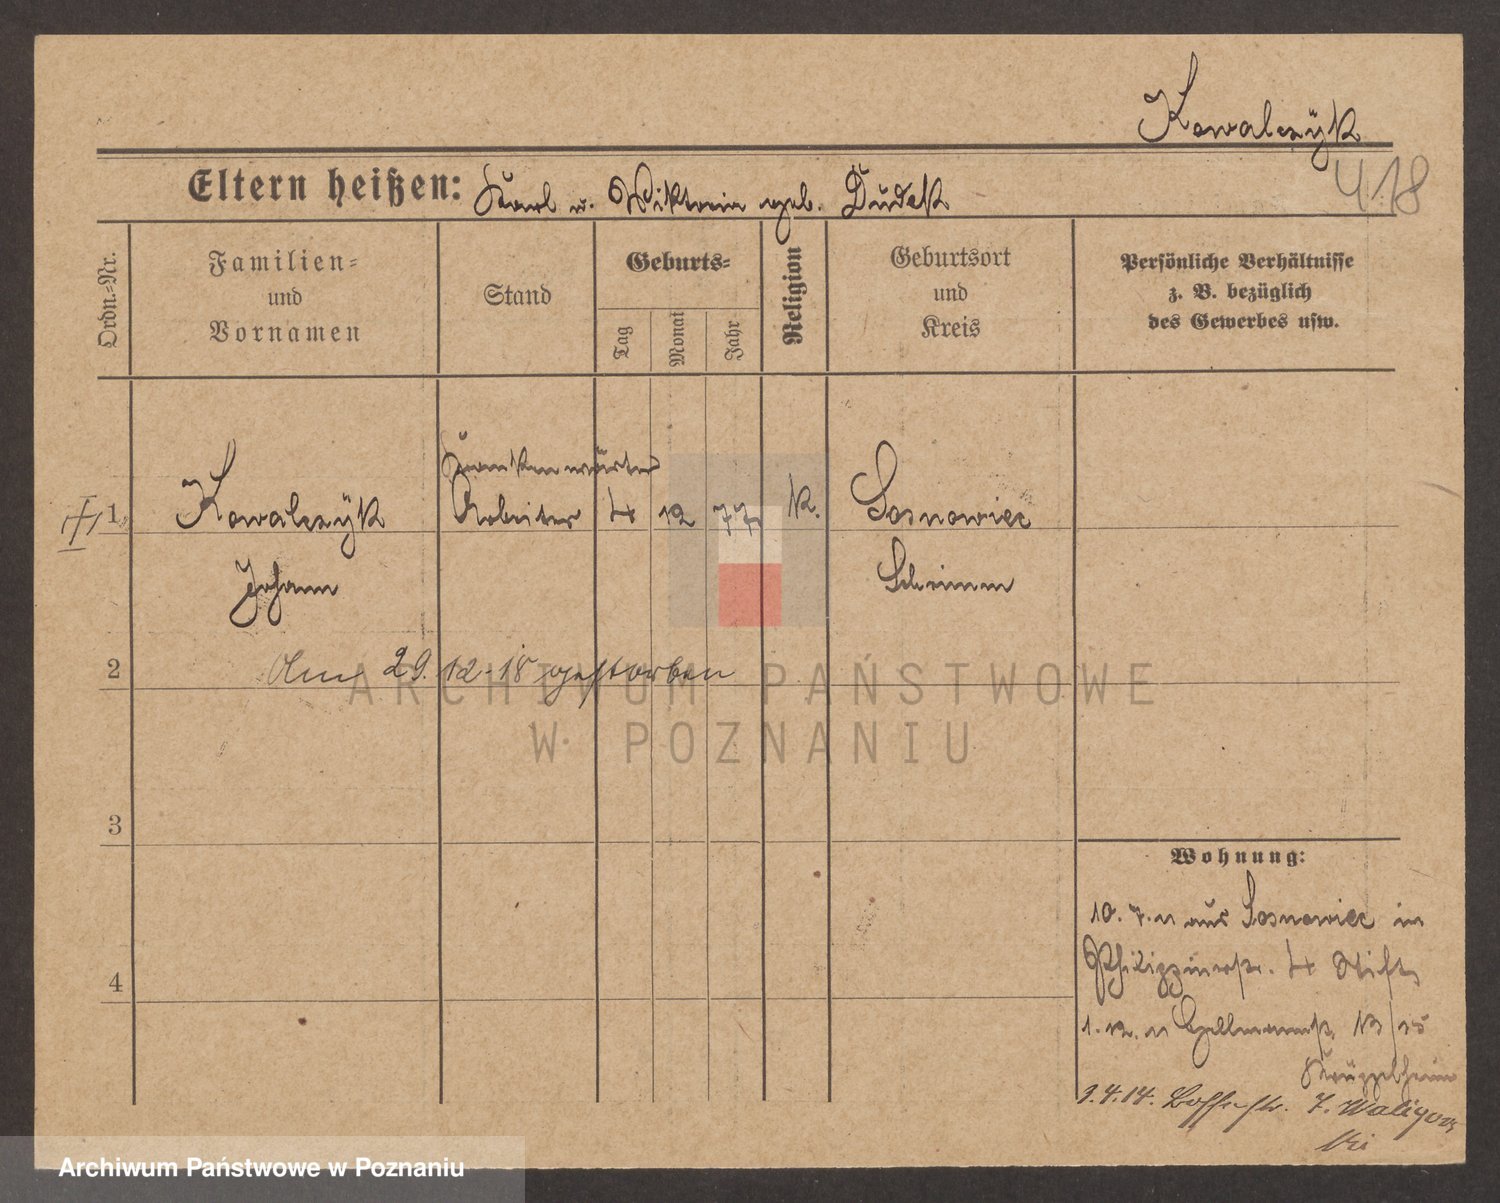 Kowalczÿk
418
Eltern heißen: Karl u. Wiktoria geb. Dudek
Ordn.-Nr.
Familien-
und
Vornamen
Stand
Geburts-
Tag
Monat
Jahr
Religion
Geburtsort
und
Kreis
Persönliche Verhältnisse
z. B. bezüglich
des Gewerbes usw.
Krankenwärter
1 Kowalczÿk Arbeiter 4 12 77 k. Sosnowiec
Johann Schrimm
2 Am 29.12.18 gestorben
3
4
Wohnung:
10. 7. 11 aus Sosnowiec in
Philippinenstr. 4 Stift
1. 12. 11 13/15
Krüppelheim
9.4.14. 7. Waligora
ARCHIWUM PAŃSTWOWE
W POZNANIU
Archiwum Państwowe w Poznaniu